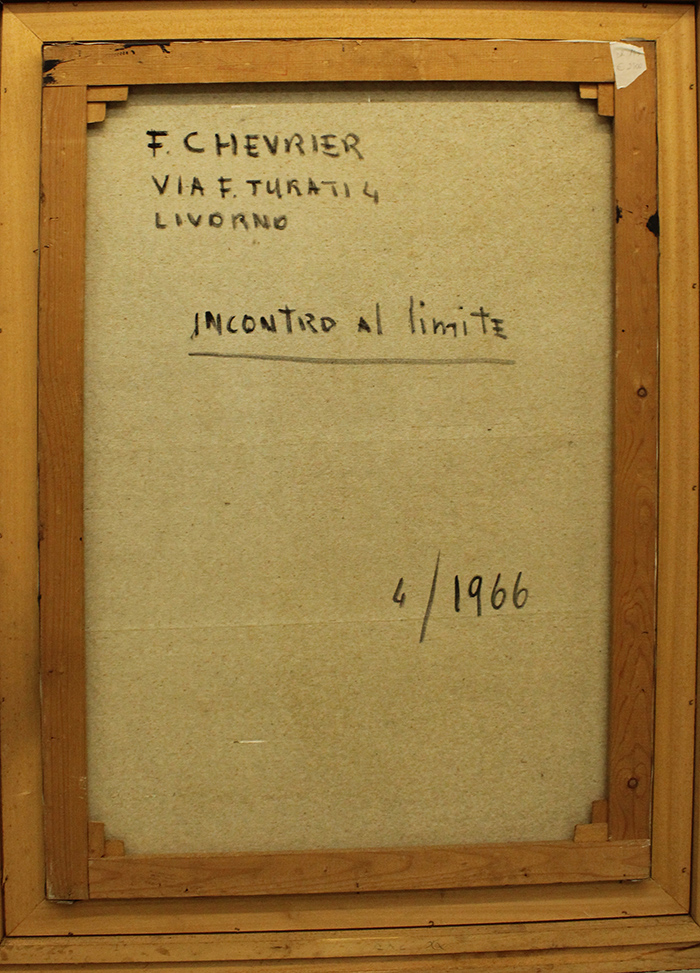 F. CHEVRIER
VIA F. TURATI 4
LIVORNO
INCONTRO Al limitE
4/1966